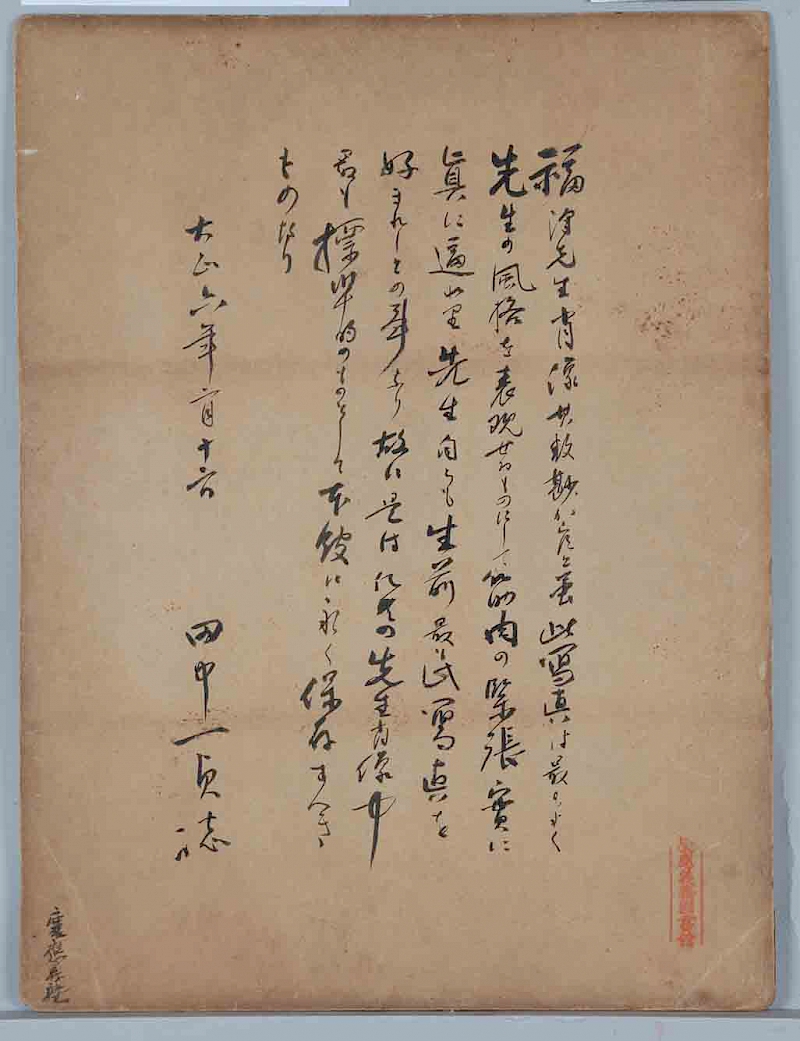 福澤先生肖像其数尠からずと雖此寫真は最もよく
先生の風格を表現せるものにして筋肉の緊張實に
真に逼れり先生自らも生前最も此寫真を
好まれしとの事なり故に是は凡ての先生肖像中
最も標準的のものとして本館に永く保存すべき
ものなり
大正六年二月十六日
田中一貞志
慶應義塾
慶應義塾圖書館